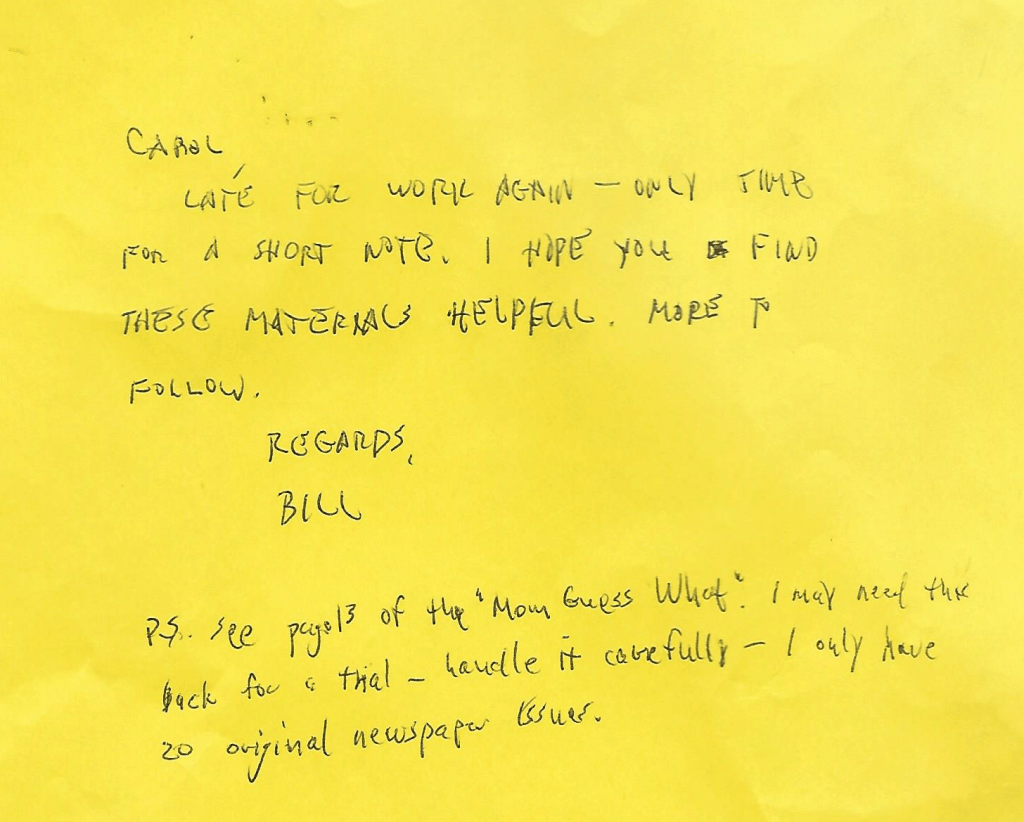 CAROL
LATE FOR WORK AGAIN — ONLY TIME
FOR A SHORT NOTE. I HOPE YOU FIND
THESE MATERIALS HELPFUL. MORE TO
FOLLOW.
REGARDS,
BILL
P.S. see page 13 of the "Mom Guess What". I may need this
back for a trial — handle it carefully — I only have
20 original newspaper issues.